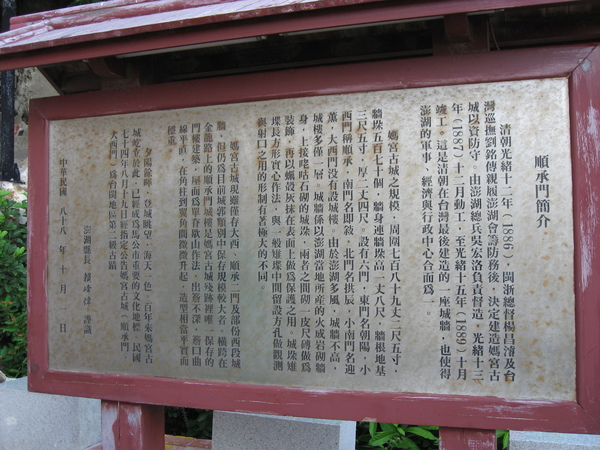 順承門簡介
清朝光緒十二年(1886),閩浙總督楊昌濬及台
灣巡撫劉銘傳親履澎湖會籌防務後,決定建造媽宮古
城以資防守,由澎湖總兵吳宏洛負責督造,光緒十三
年(1887)十二月動工,至光緒十五年(1889)十月
竣工。這是清朝在台灣最後建造的一座城牆,也使得
澎湖的軍事、經濟與行政中心合而為一。
媽宮古城之規模,周圍七百八十九丈二尺五寸,
牆垛五百七十個,牆身連牆垛高一丈八尺,牆根地基
三尺五寸,厚二丈四尺。設有六門,東門名朝陽,小
西門稱順承,南門名即敘,北門名拱辰,小南門名迎
薰,大西門沒有設城樓。由於澎湖多風,城牆不高,
城樓多僅一層,城牆係以澎湖當地所產的火成岩砌牆
身,上接咾咕石砌的城垛,兩者之間砌一皮尺磚做為
裝飾,再以蠣殼灰抹在表面上做為保護之用,城垛雉
堞長方形實心作法,與一般雉堞中間留設方孔做觀測
與射口之用的形制有著極大的不同。
媽宮古城現雖僅存大西、順承二門及部份西段城
牆,但仍為目前城郭類別中保存規模較大者。橫跨在
金龍路上的順承門城樓是媽宮古城殘跡裡唯一保存的
門樓建築,屋頂為單脊歇山作法,出簷不深,簷口曲
線平直,在角柱到翼角間微微升起,造型相當平實而
穩重。
夕陽餘暉,登城眺望,海天一色,百年來媽宮古
城屹立於此,已經成為馬公市重要的文化地標,民國
七十四年八月十九日經指定公告媽宮古城—順承門、
大西門,為台閩地區第二級古蹟。
澎湖縣長 賴峰偉 謹識
中華民國 八十八 年 十 月 日